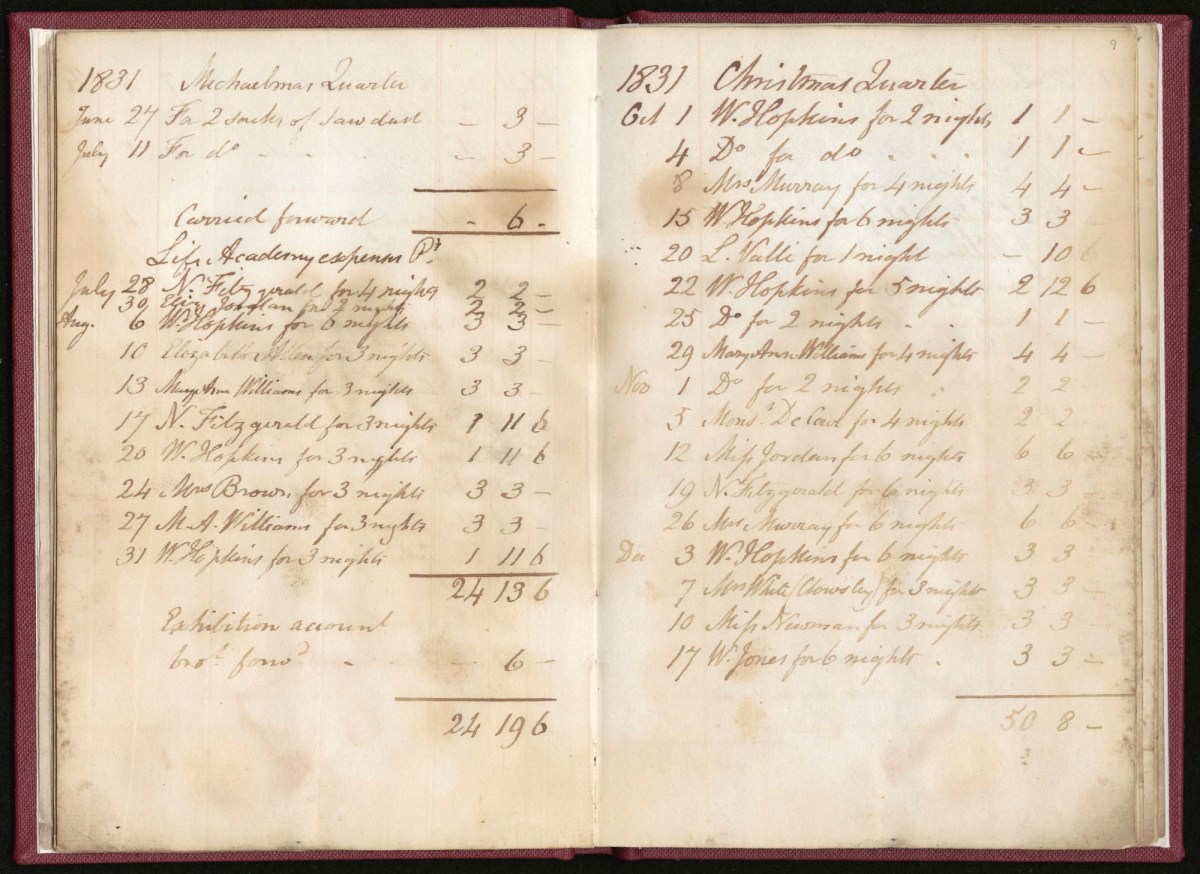 1831 Michaelmas Quarter
June 27 For 2 sacks of sawdust - 3 -
July 11 For do - 3 -
Carried forward - 6 -
Life Academy expenses Pd
July 28 N. Fitzgerald for 4 nights 2 2 -
30 Eliz. Jordan for 2 nights 2 2 -
Aug. 6 W. Hopkins for 6 nights 3 3 -
10 Elizabeth Allen for 3 nights 3 3 -
13 Mary Ann Williams for 3 nights 3 3 -
17 N. Fitzgerald for 3 nights 1 11 6
20 W. Hopkins for 3 nights 1 11 6
24 Mrs Brown for 3 nights 3 3 -
27 M. A. Williams for 3 nights 3 3 -
31 W. Hopkins for 3 nights 1 11 6
24 13 6
Exhibition account
brot. forwd - 6 -
24 19 6
9
1831 Christmas Quarter
Oct 1 W. Hopkins for 2 nights 1 1 -
4 Do for do 1 1 -
8 Mrs Murray for 4 nights 4 4 -
15 W. Hopkins for 6 nights 3 3 -
20 L. Valli for 1 night - 10 6
22 W. Hopkins for 5 nights 2 12 6
25 Do for 2 nights 1 1 -
29 Mary Ann Williams for 4 nights 4 4 -
Nov 1 Do for 2 nights 2 2
5 Monsr. De for 4 nights 2 2
12 Miss Jordan for 6 nights 6 6 -
19 N. Fitzgerald for 6 nights 3 3
26 Mrs Murray for 6 nights 6 6 -
Dec 3 W. Hopkins for 6 nights 3 3 -
7 Mrs White for 3 nights 3 3 -
10 Miss Newman for 3 nights 3 3
17 W. Jones for 6 nights 3 3 -
50 8 -